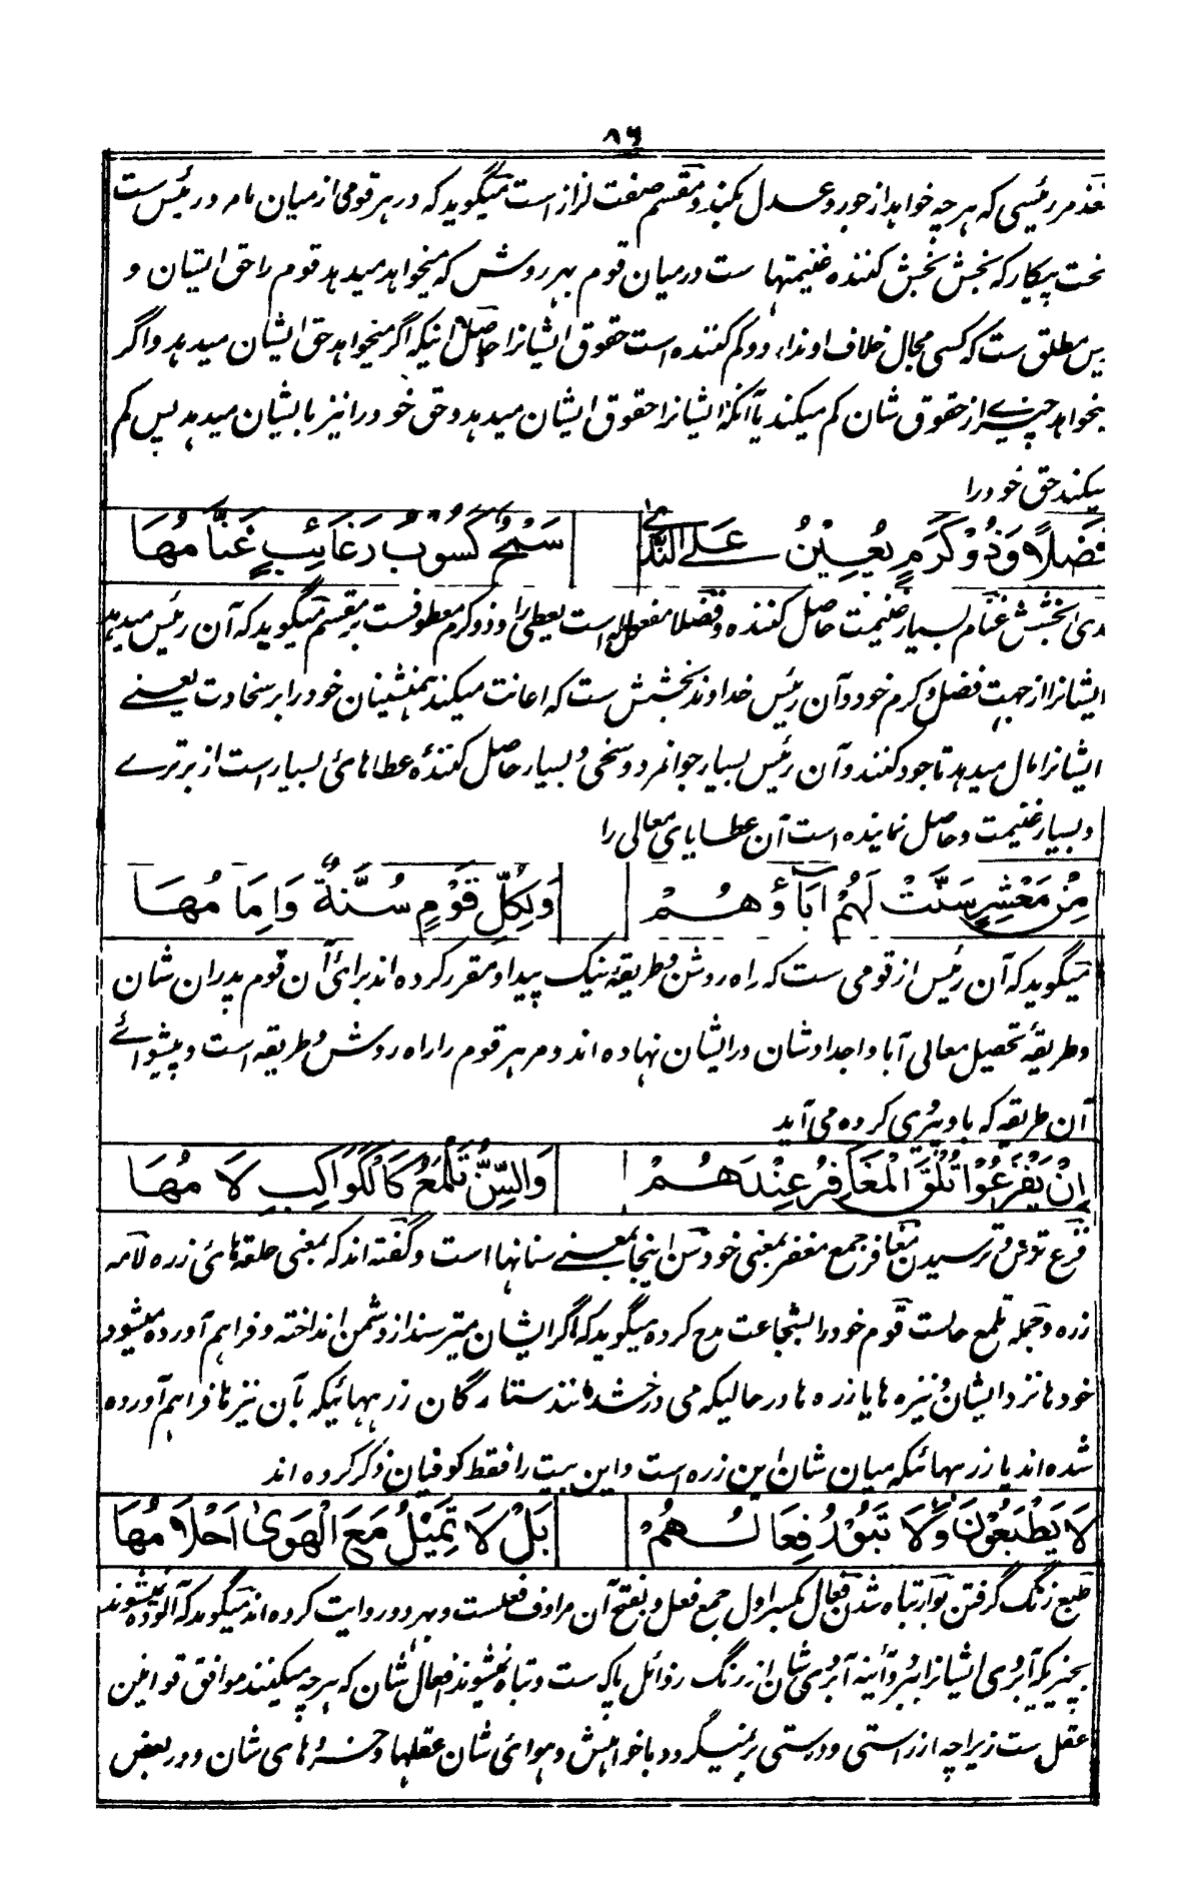 ٨٦
مغذمر رئیسی که هرچه خواهد از جور و عدل بکند و مقسم صفت لزاز است میگوید که در هر قومی از میان ما مهر و رئیس ست
سخت پیکار که بخش بخش کننده غنیمتها ست درمیان قوم بهر روش که میخواهد میدهد قوم را حق ایشان و
رئیس مطلق ست که کسی مجال خلاف او ندارد و کم کننده است حقوق ایشانرا حاصل اینکه اگر میخواهد حق ایشان میدهد و اگر
میخواهد چیزے از حقوق شان کم میکند یا آنکه ایشانرا حقوق ایشان میدهد و حق خود را نیز بایشان میدهد پس کم
میکند حق خود را
فَضْلاً وَذُوْ كَرَمٍ يُعِيْنُ عَلَے النَّدٰے سَمْحٌ كَسُوْبُ رَغَائِبٍ غَنَّامُهَا
ندی بخشش غنام بسیار غنیمت حاصل کننده و فضلا مفعول له است یعطی را و ذو کرم معطوفست بر مقسم میگوید که آن رئیس میدهد
ایشانرا از جهت فضل و کرم خود و آن رئیس خداوند بخشش ست که اعانت میکند همنشینان خود را بر سخاوت یعنے
ایشانرا مال میدهد تا جود کنند و آن رئیس بسیار جوانمرد و سخی و بسیار حاصل کنندۀ عطاهائ بسیار است از برترے
و بسیار غنیمت و حاصل نماینده است آن عطایای معالی را
مِنْ مَعْشِرٍ سَنَّتْ لَهُمْ آبَاؤُهُمْ وَلِكُلِّ قَوْمٍ سُنَّةٌ وَاِمَامُهَا
میگوید که آن رئیس از قومی ست که راه روشن و طریقۀ نیک پیدا و مقرر کرده اند برائ آن قوم پدران شان
و طریقۀ تحصیل معالی آبا و اجداد شان در ایشان نهاده اند و مر هر قوم را راه روشن و طریقه است و پیشوائے
آن طریقه که باو پیروی کرده می آید
اِنْ يَفْزَعُوْا تُلْقَ الْمَغَافِرُ عِنْدَهُمْ وَالسِّنُّ تَلْمَعُ كَالْكَوَاكِبِ لَامُهَا
فزع ترسیدن مغافر جمع مغفر بمعنی خود سن اینجا بمعنے سنانها است و گفته اند که بمعنی حلقه هائی زره لامه
زره و جمله تلمع حالست قوم خود را بشجاعت مدح کرده میگوید که اگر ایشان میترسند از دشمن انداخته و فراهم آورده میشود
خودها نزد ایشان و نیزه ها یا زره ها در حالیکه می درخشد مانند ستارگان زرههائیکه بآن نیزها فراهم آورده
شده اند یا زرههائیکه میان شان این زره است و این بیت را فقط کوفیان ذکر کرده اند
لَا يَطْبَعُوْنَ وَلَا تَبُوْرُ فِعَالُهُمْ بَلْ لَا تَمِيْلُ مَعَ الْهَوٰى اَحْلَامُهَا
طبع زنگ گرفتن بوار تباه شدن فعال بکسر اول جمع فعل و بفتح آن مرادف فعلست و بهر دو روایت کرده اند میگوید که آلوده نمیشوند
بچیزیکه آبروی ایشانرا ببرد و آئینه آبروی شان از زنگ رذائل پاک ست و تباه نمیشوند افعال شان که هرچه میکنند موافق قوانین
عقل ست زیراچه از راستی و درستی بر نمیگردد با خواهش و هوائ شان عقلها و خردهای شان و در بعض